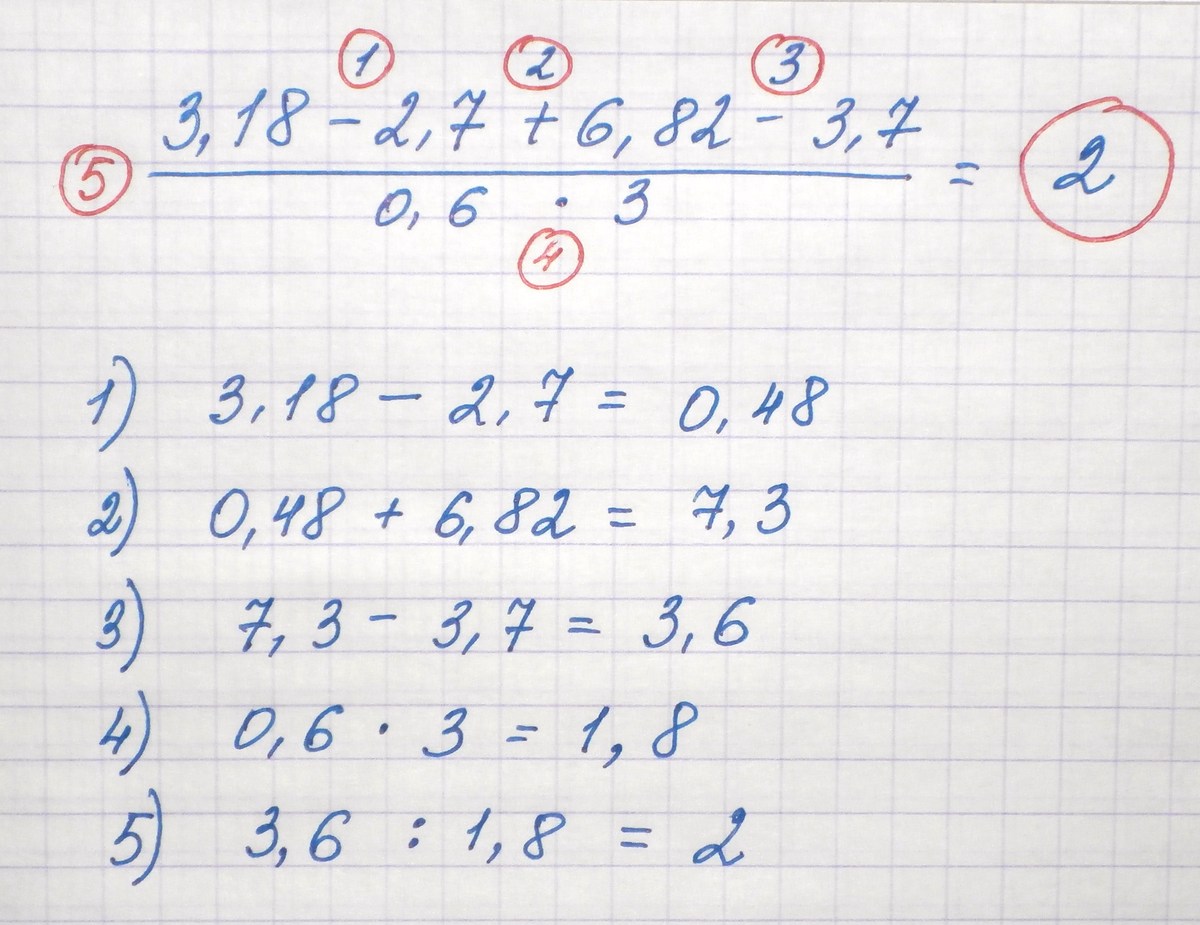 1 2 3
3,18 - 2,7 + 6,82 - 3,7
5 = 2
0,6 · 3
4
1) 3,18 - 2,7 = 0,48
2) 0,48 + 6,82 = 7,3
3) 7,3 - 3,7 = 3,6
4) 0,6 · 3 = 1,8
5) 3,6 : 1,8 = 2